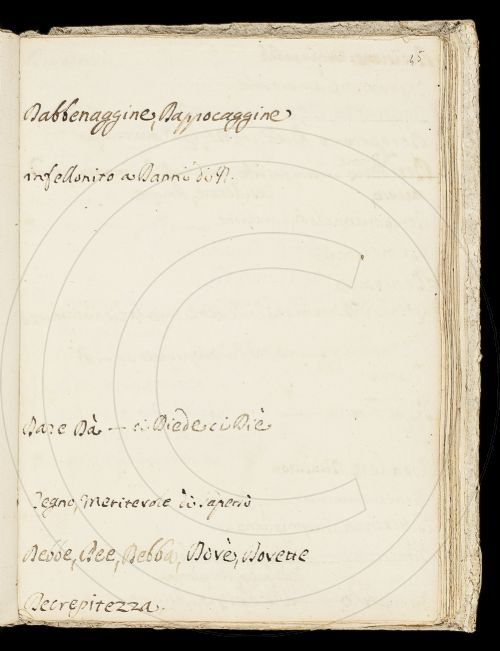 45
Dabbenaggine, Dappocaggine
infellonito a Danni di N.
Dare Dà — ci Diede ci Diè
Degno, Meritevole di sapersi
Debbe, Dee, Debba, Dovè, Dovette
Decrepitezza.